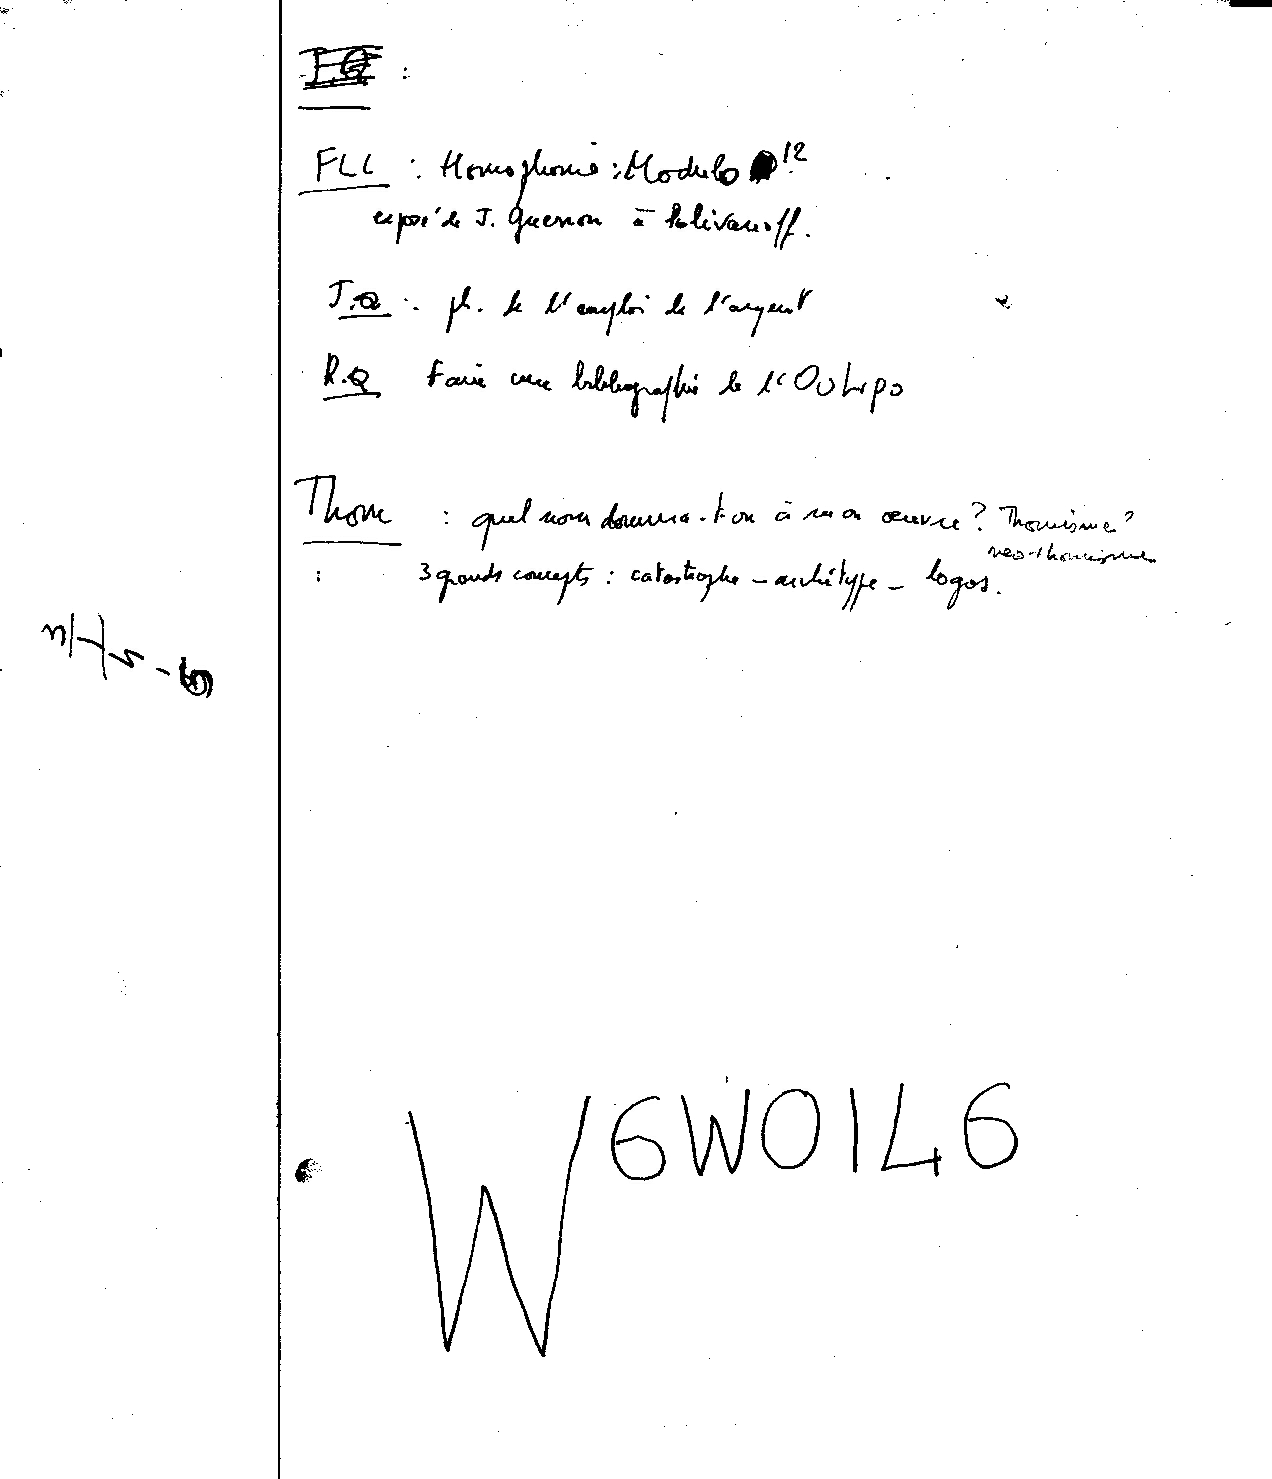 FLL : Homophonie : Modulo 12
exposé de J. Quesnon à Polivanoff.
J.Q : pb. de l'emploi de l'argent
R.Q Faire une bibliographie de l'OuLipo
Thom : quel nom donnera-t-on à mon œuvre ? Thomisme ?
neo-thomisme
: 3 grands concepts : catastrophe - archétype - logos.
W 6W01L6